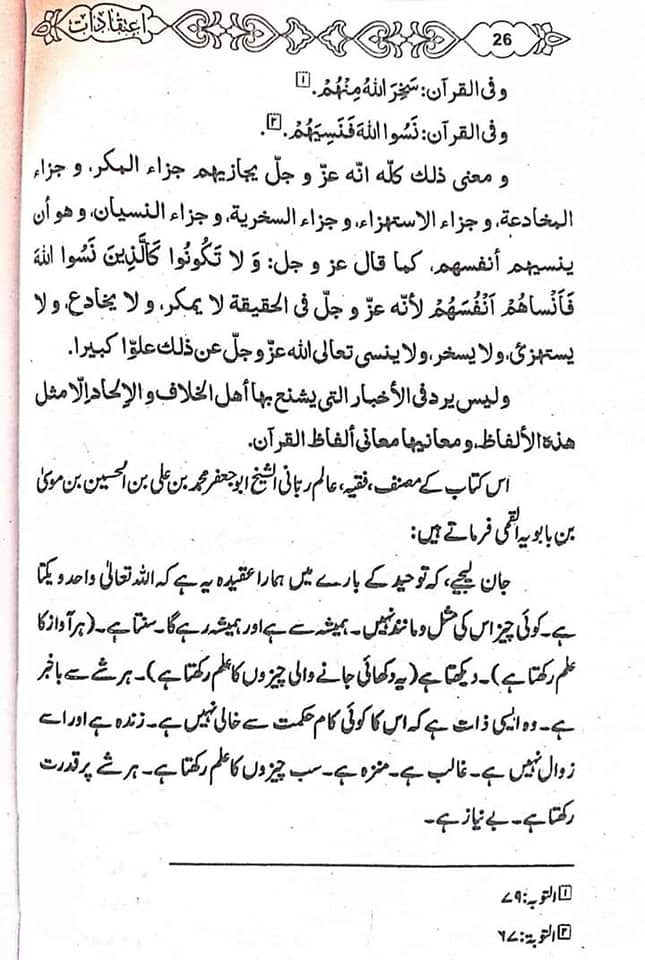 اعتقادات
26
وفی القرآن: سَخِرَ اللهُ مِنْهُمْ.[۱]
وفی القرآن: نَسُوا اللهَ فَنَسِيَهُمْ.[۲].
و معنی ذلك كلّه انّه عزّ و جلّ يجازيهم جزاء المكر، و جزاء
المخادعة، و جزاء الاستهزاء، و جزاء السخرية، و جزاء النسيان، و هو أن
ينسيهم أنفسهم، كما قال عز و جل: وَ لَا تَكُونُوا كَالَّذِينَ نَسُوا اللهَ
فَأَنْسَاهُمْ اَنْفُسَهُمْ لأنّه عزّ و جلّ فی الحقيقة لا يمكر، و لا يخادع، و لا
يستهزئ، ولا يسخر، ولا ينسی تعالی الله عزّ و جلّ عن ذلك علوّا كبيرا.
وليس يرد فی الأخبار التی يشنع بها أهل الخلاف و الإلحاد إلّا مثل
هذه الألفاظ، و معانيها معانی ألفاظ القرآن.
اس کتاب کے مصنف، فقیہ، عالم ربانی الشیخ ابو جعفر محمد بن علی بن الحسین بن موسیٰ
بن بابویہ القمی فرماتے ہیں:
جان لیجیے، کہ توحید کے بارے میں ہمارا عقیدہ یہ ہے کہ اللہ تعالیٰ واحد و یکتا
ہے۔ کوئی چیز اس کی مثل و مانند نہیں۔ ہمیشہ سے ہے اور ہمیشہ رہے گا۔ سنتا ہے۔ (ہر آواز کا
علم رکھتا ہے)۔ دیکھتا ہے (یہ دکھائی جانے والی چیزوں کا علم رکھتا ہے)۔ ہر شے سے باخبر
ہے۔ وہ ایسی ذات ہے کہ اس کا کوئی کام حکمت سے خالی نہیں ہے۔ زندہ ہے اور اسے
زوال نہیں ہے۔ غالب ہے۔ منزہ ہے۔ سب چیزوں کا علم رکھتا ہے۔ ہر شے پر قدرت
رکھتا ہے۔ بے نیاز ہے۔
[۱] التوبہ: ۷۹
[۲] التوبۃ: ۶۷